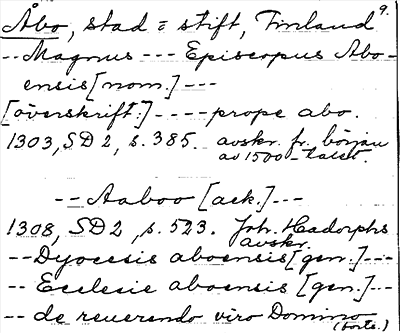 Åbo, stad = stift, Finland 9.
-- Magnus --- Episcopus Abo-
ensis [nom.] ---
[överskrift:] ---- prope abo.
1303, SD 2, s. 385. avskr. fr. början
av 1500-talet.
-- Aaboo [ack.] ---
1308, SD 2, s. 523. Joh. Hadorphs
avskr.
-- Dyocesis aboensis [gen.] ---
-- Ecclesie aboensis [gen.] ---
-- de reuerendo viro Domino
(forts.)